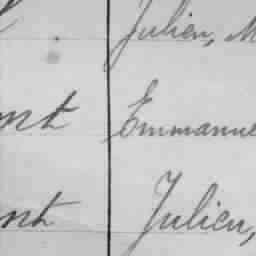 Julien, M
nt Emmanue
nt Julien,